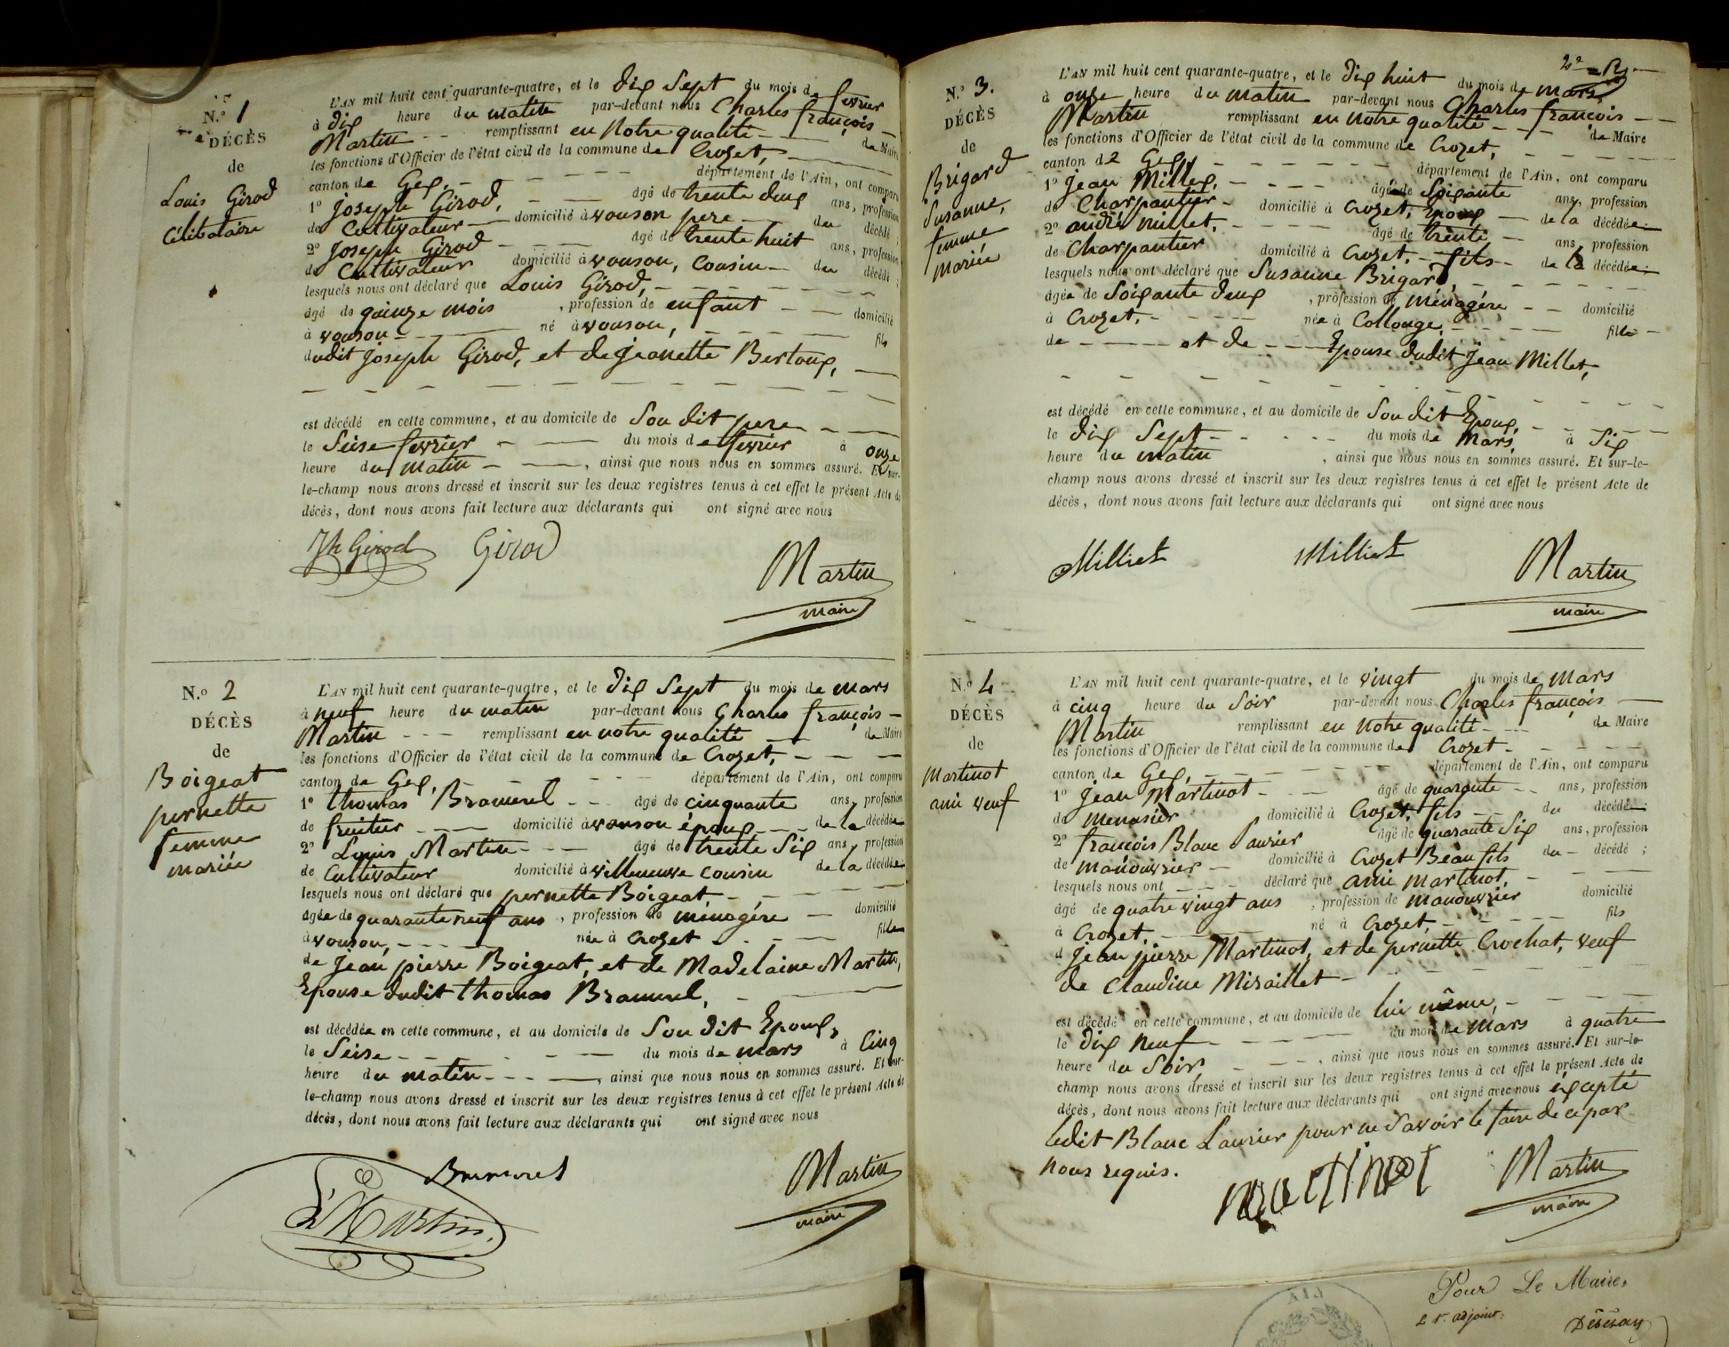 N.º 1
DÉCÈS
de
Louis Girod
célibataire
L'AN mil huit cent quarante-quatre, et le dix Sept du mois de fevrier
à dix heure du matin par-devant nous Charles françois
Martin remplissant en notre qualité de Maire
les fonctions d'Officier de l'état civil de la commune de Crozet,
canton de Gex, département de l'Ain, ont comparu
1º Joseph Girod, âgé de trente deux ans, profession
de Cultivateur domicilié à vouson pere du décédé ;
2º Joseph Girod âgé de trente huit ans, profession
de Cultivateur domicilié à vouson, Cousin du décédé ;
lesquels nous ont déclaré que Louis Girod,
âgé de quinze mois, profession de enfant domicilié
à vouson né à vouson, fils
dudit Joseph Girod, et de jeanette Bertoux,
est décédé en cette commune, et au domicile de Son dit pere
le Seise fevrier du mois de fevrier à onze
heure du matin, ainsi que nous nous en sommes assuré. Et sur-
le-champ nous avons dressé et inscrit sur les deux registres tenus à cet effet le présent Acte de
décès, dont nous avons fait lecture aux déclarants qui ont signé avec nous
Jh Girod Girod
Martin
maire
N.º 2
DÉCÈS
de
Boigeat
pernette
femme
mariée
L'AN mil huit cent quarante-quatre, et le dix Sept du mois de mars
à neuf heure du matin par-devant nous Charles françois
Martin remplissant en notre qualité de Maire
les fonctions d'Officier de l'état civil de la commune de Crozet,
canton de Gex, département de l'Ain, ont comparu
1º thomas Bramerel âgé de cinquante ans, profession
de fruitier domicilié à vouson époux de la décédée
2º Louis Martin âgé de trente Six ans, profession
de Cultivateur domicilié à villeneuve cousin de la décédée
lesquels nous ont déclaré que pernette Boigeat,
âgée de quarante neuf ans, profession de menagére domicilié
à vouson, née à Crozet fille
de Jean pierre Boigeat, et de Madelaine Martin,
Epouse dudit thomas Bramerel,
est décédée en cette commune, et au domicile de Son dit Epoux,
le Seise du mois de mars à Cinq
heure du matin, ainsi que nous nous en sommes assuré. Et sur-
le-champ nous avons dressé et inscrit sur les deux registres tenus à cet effet le présent Acte de
décès, dont nous avons fait lecture aux déclarants qui ont signé avec nous
L Martin
Martin
maire
2e
N.º 3.
DÉCÈS
de
Brigard
Susanne,
femme
mariée
L'AN mil huit cent quarante-quatre, et le dix huit du mois de mars
à onze heure du matin par-devant nous Charles françois
Martin remplissant en notre qualité de Maire
les fonctions d'Officier de l'état civil de la commune de Crozet,
canton de Gex département de l'Ain, ont comparu
1º Jean Millet, âgé de Soixante ans, profession
de Charpantier domicilié à Crozet, Epoux de la décédée
2º andré millet, âgé de trente ans, profession
de Charpantier domicilié à Crozet, fils de la décédée
lesquels nous ont déclaré que Susanne Brigard,
âgée de Soixante deux, profession de ménagére domicilié
à Crozet, née à Collonge, fille
de et de Epouse dudit Jean Millet,
est décédé en cette commune, et au domicile de Son dit Epoux,
le dix Sept du mois de mars, à Six
heure du matin, ainsi que nous nous en sommes assuré. Et sur-le-
champ nous avons dressé et inscrit sur les deux registres tenus à cet effet le présent Acte de
décès, dont nous avons fait lecture aux déclarants qui ont signé avec nous
Milliet Milliet
Martin
maire
N.º 4
DÉCÈS
de
Martinot
ami veuf
L'AN mil huit cent quarante-quatre, et le vingt du mois de mars
à cinq heure du Soir par-devant nous Charles françois
Martin remplissant en notre qualité de Maire
les fonctions d'Officier de l'état civil de la commune de Crozet
canton de Gex, département de l'Ain, ont comparu
1º Jean Martinot âgé de quarante ans, profession
de menusier domicilié à Crozet, fils du décédé
2º françois Blanc Laurier âgé de quarante Six ans, profession
de manouvrier domicilié à Crozet Beau fils du décédé ;
lesquels nous ont déclaré que ami martinot,
âgé de quatre vingt ans, profession de manouvrier domicilié
à Crozet, né à Crozet, fils
d Jean pierre Martinot, et de pernette Crochat, veuf
de Claudine Miraillet
est décédé en cette commune, et au domicile de lui même,
le dix neuf du mois de mars à quatre
heure du Soir, ainsi que nous nous en sommes assuré. Et sur-le-
champ nous avons dressé et inscrit sur les deux registres tenus à cet effet le présent Acte de
décès, dont nous avons fait lecture aux déclarants qui ont signé avec nous éxcepté
ledit Blanc Laurier pour ne Savoir le faire de ce par
nous requis.
martinot
Martin
maire
AIN
Pour Le Maire,
adjoint